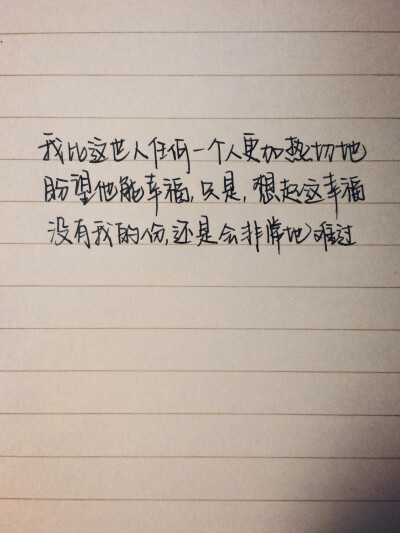 我比这世人任何一个人更加热切地
盼望他能幸福,只是,想起这幸福
没有我的份,还是会非常地难过